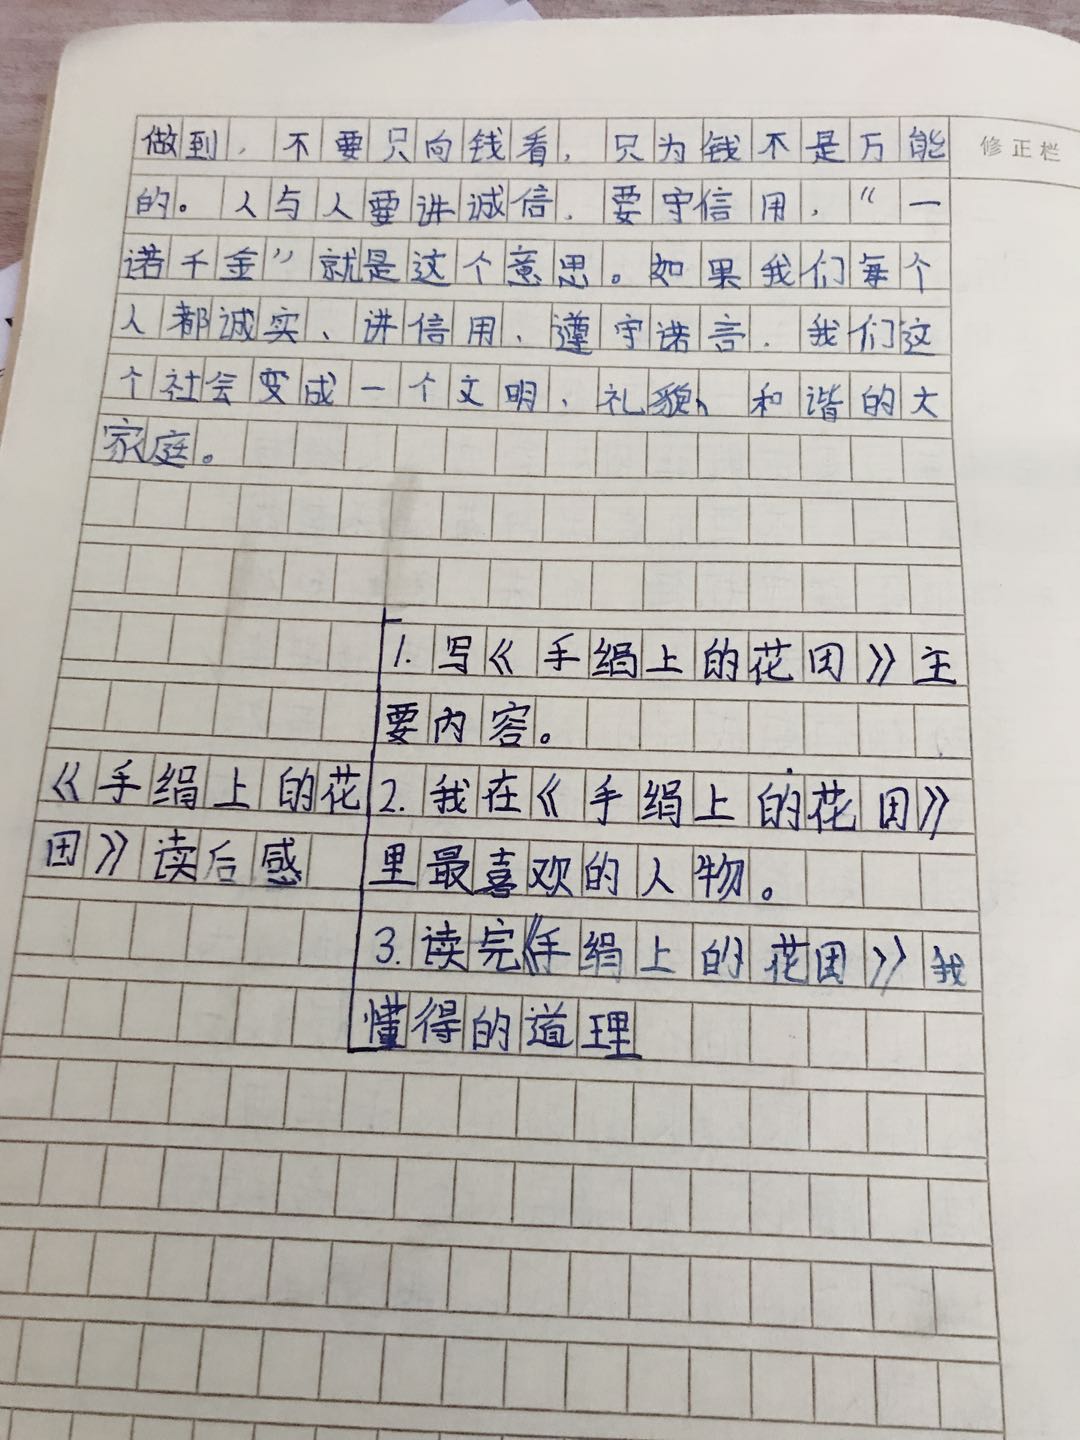 做到，不要只向钱看，只为钱不是万能
修正栏
的。人与人要讲诚信，要守信用，“一
诺千金”就是这个意思。如果我们每个
人都诚实、讲信用、遵守诺言，我们这
个社会变成一个文明、礼貌、和谐的大
家庭。
1. 写《手绢上的花田》主
要内容。
《手绢上的花
田》读后感
2. 我在《手绢上的花田》
里最喜欢的人物。
3. 读完《手绢上的花田》我
懂得的道理